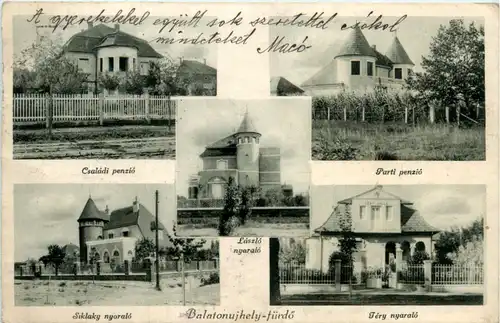 A gyerekekkel együtt sok szeretettel csókol
mindeteket Macó
Családi penzió
Parti penzió
László
nyaraló
Siklaky nyaraló
Balatonujhely-fürdő
Téry nyaraló